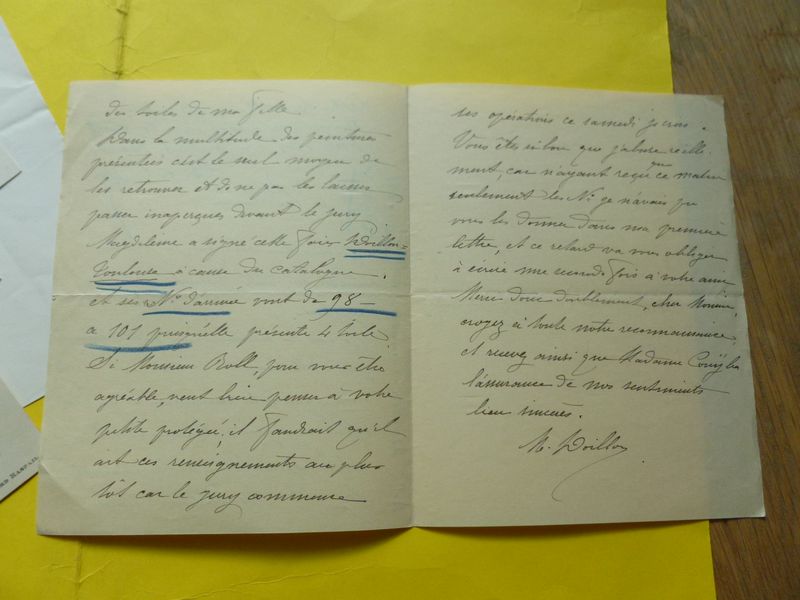 des toiles de ma fille
Dans la multitude des peintures
présentées c'est le seul moyen de
les retrouver et de ne pas les laisser
passer inaperçues devant le jury
Magdeleine a signé cette fois Doillon=
Toulouse à cause du catalogue.
et ses Nos d'arrivée vont de 98 —
à 101 puisqu'elle présente 4 toiles.
Si Monsieur Roll, pour vous être
agréable, veut bien penser à votre
petite protégée, il faudrait qu'il
ait ces renseignements au plus
tôt car le jury commence
ses opérations ce samedi je crois.
Vous êtes si bon que j'abuse réelle-
ment, car n'ayant reçu que ce matin
seulement les Nos je n'avais pu
vous les donner dans ma première
lettre, et ce retard va vous obliger
à écrire une seconde fois à votre ami
Merci donc doublement, cher Monsieur,
croyez à toute notre reconnaissance,
et recevez ainsi que Madame
l'assurance de nos sentiments
bien sincères.
M. Doillon